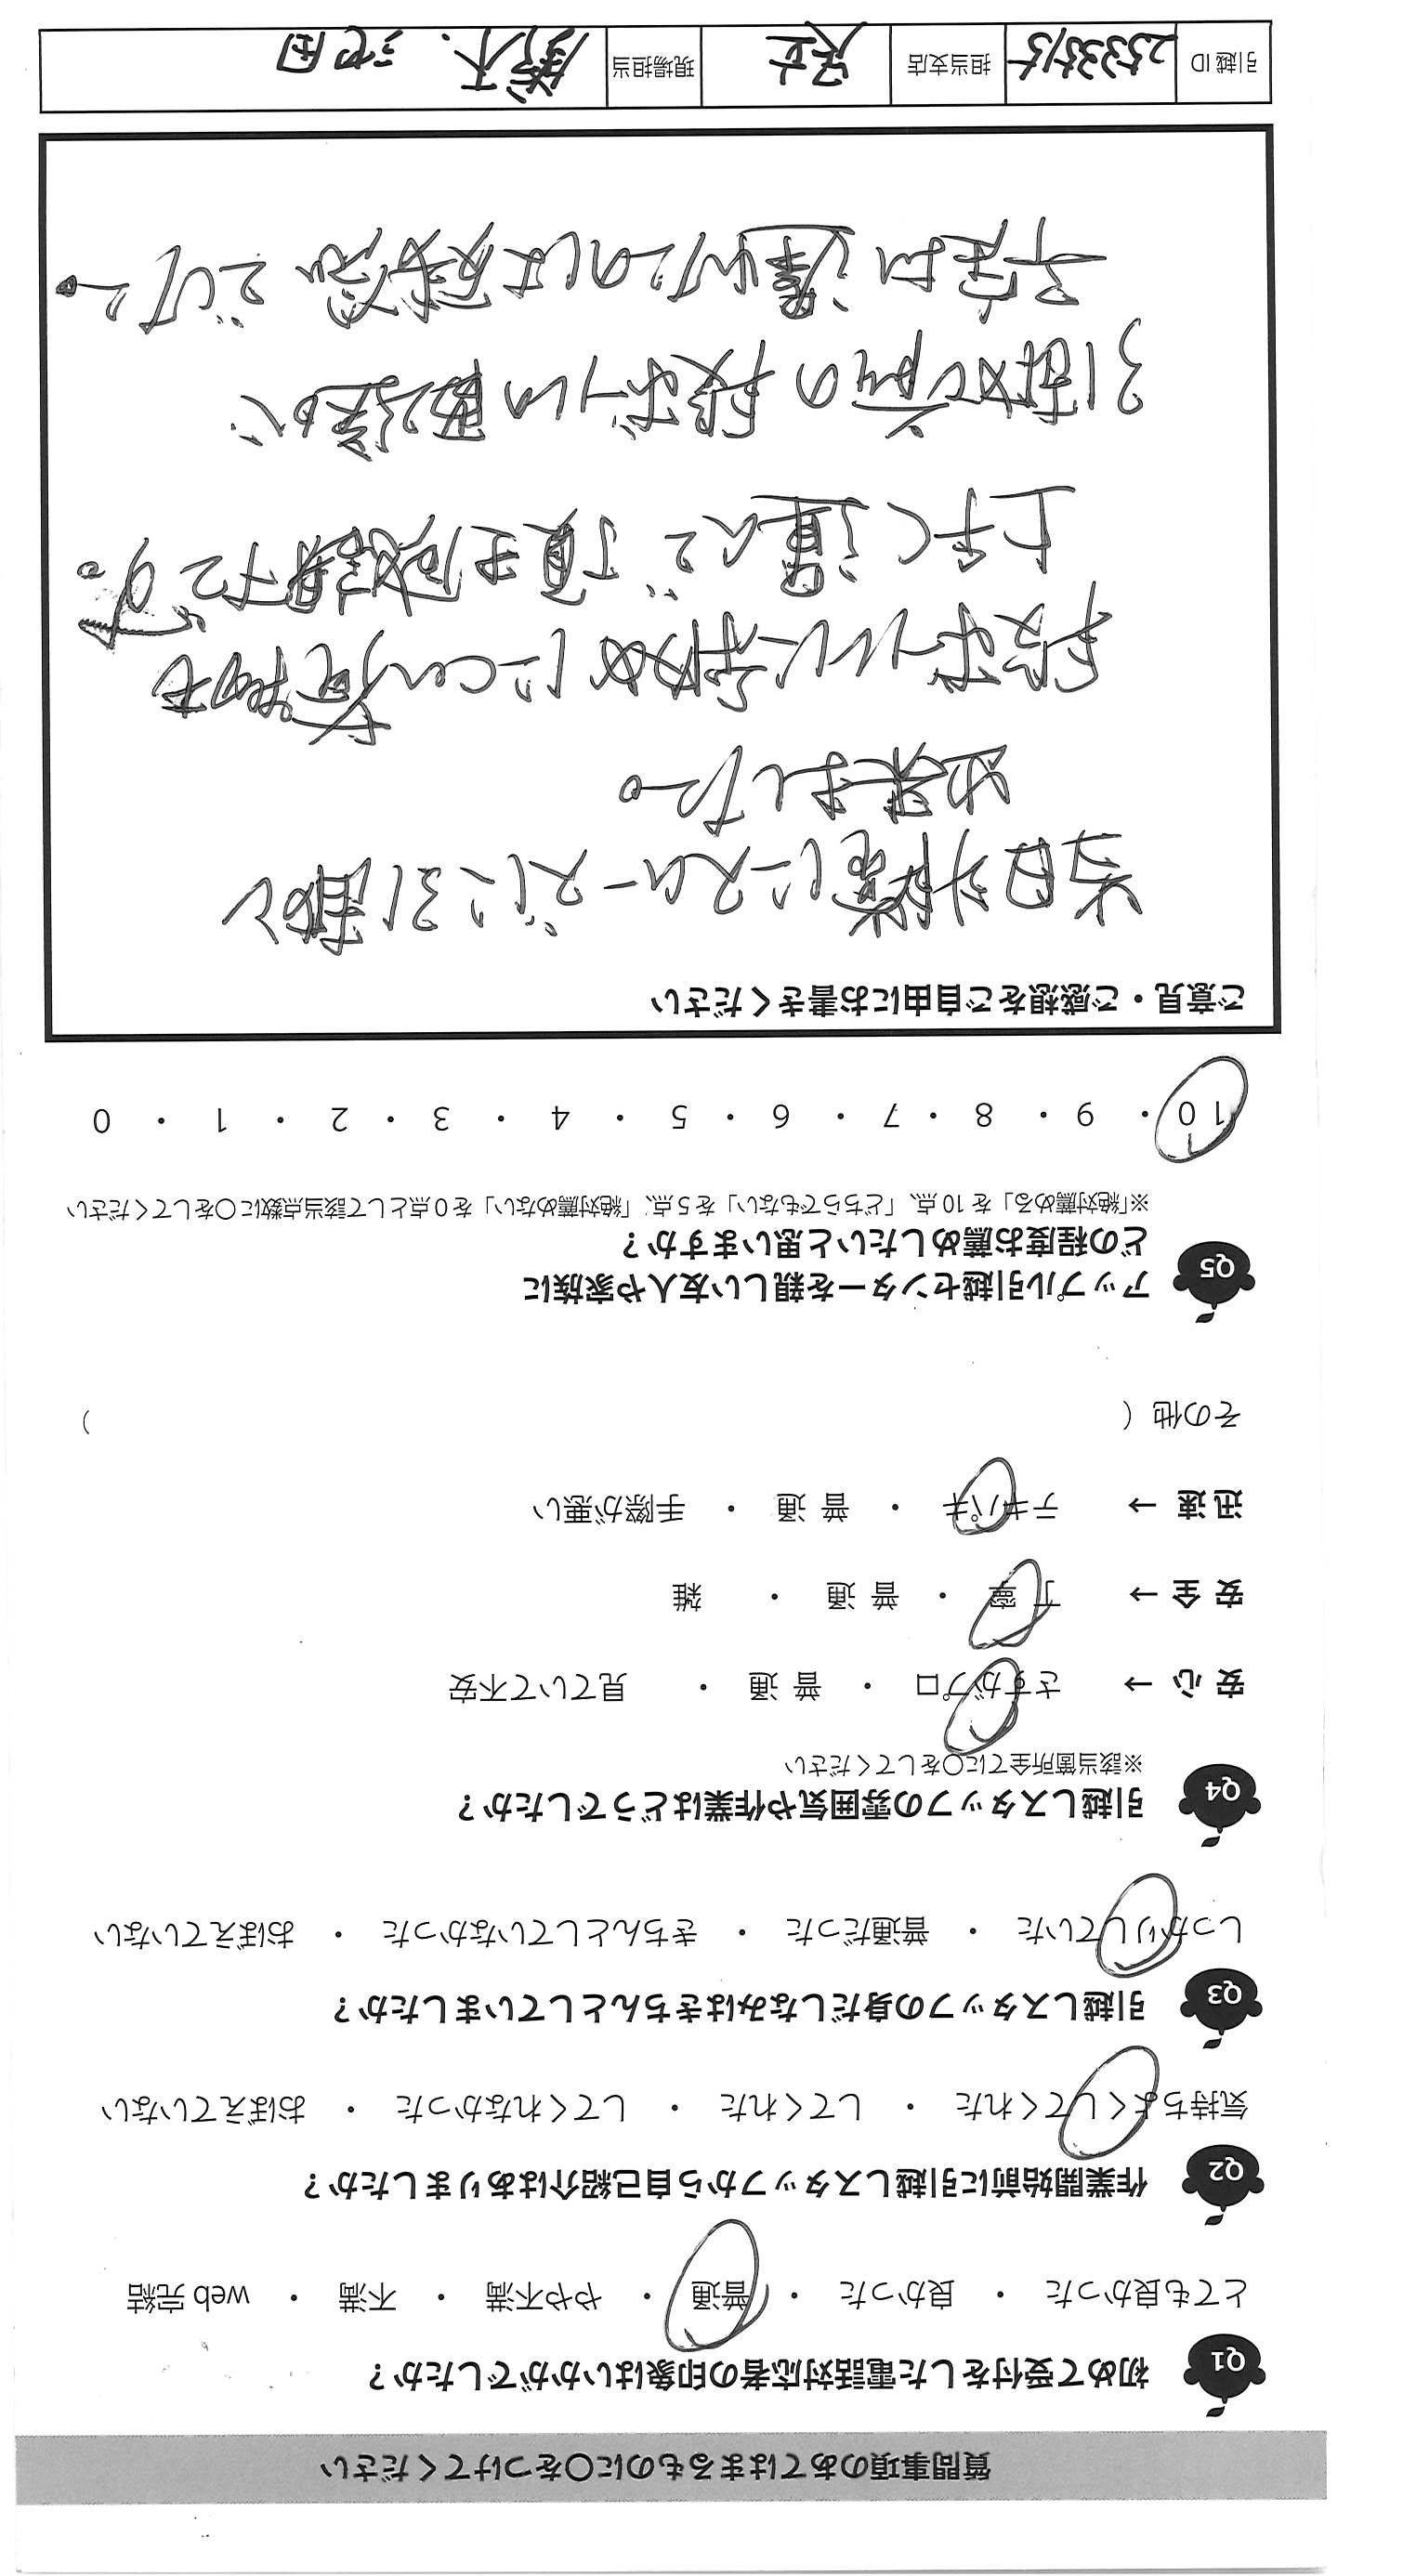 質問事項のあてはまるものに○をつけてください
Q1 初めて受付をした電話対応者の印象はいかがでしたか？
とても良かった ・ 良かった ・ 普通 ・ やや不満 ・ 不満 ・ web 完結
Q2 作業開始前に引越しスタッフから自己紹介はありましたか？
気持ちよくしてくれた ・ してくれた ・ してくれなかった ・ おぼえていない
Q3 引越しスタッフの身だしなみはきちんとしていましたか？
しっかりしていた ・ 普通だった ・ きちんとしていなかった ・ おぼえていない
Q4 引越しスタッフの雰囲気や作業はどうでしたか？
※該当箇所全てに○をしてください
安 心 → さすがプロ ・ 普 通 ・ 見ていて不安
安 全 → 丁 寧 ・ 普 通 ・ 雑
迅 速 → テキパキ ・ 普 通 ・ 手際が悪い
その他（ ）
Q5 アップル引越センターを親しい友人や家族に
どの程度お薦めしたいと思いますか？
※「絶対薦める」を 10 点、「どちらでもない」を 5 点、「絶対薦めない」を 0 点として該当点数に○をしてください
10 ・ 9 ・ 8 ・ 7 ・ 6 ・ 5 ・ 4 ・ 3 ・ 2 ・ 1 ・ 0
ご意見・ご感想をご自由にお書きください
当日非常にスムーズに引越し
出来ました。
段ボールに詰めにくい荷物も
上手く運んで頂き感謝です。
引越で前の段ボールの配送が
予定より遅かったのは残念でした。
引越 ID
担当支店 足立
現場担当 鈴木、沼田